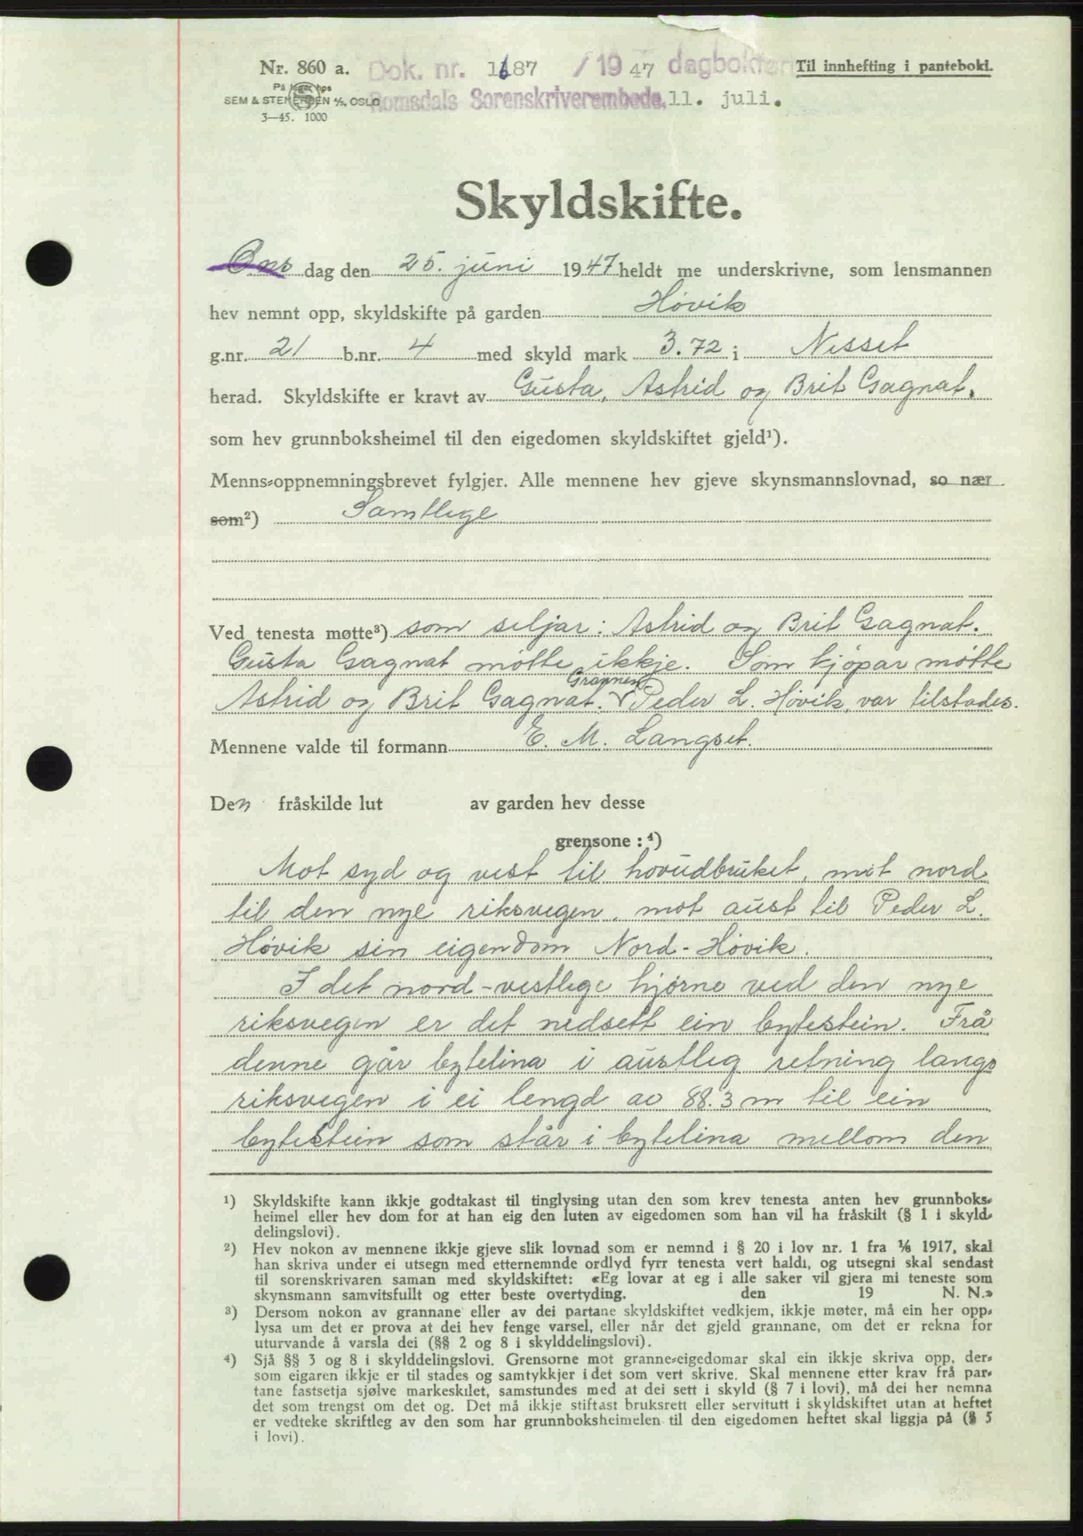 Nr. 860 a. Dok. nr. 1687 / 19 47 dagboken Til innhefting i panteboki.
På lager hos
SEM & STENERSEN A/S, OSLO Romsdals Sorenskriverembede, 11. juli.
3—45. 1000
Skyldskifte.
Ons dag den 25. juni 1947 heldt me underskrivne, som lensmannen
hev nemnt opp, skyldskifte på garden Høvik
g.nr. 21 b.nr. 4 med skyld mark 3.72 i Nesset
herad. Skyldskifte er kravt av Gusta, Astrid og Brit Gagnat,
som hev grunnboksheimel til den eigedomen skyldskiftet gjeld¹).
Menns-oppnemningsbrevet fylgjer. Alle mennene hev gjeve skynsmannslovnad, so nær
som²) Samtlege
Ved tenesta møtte³) som seljar: Astrid og Brit Gagnat.
Gusta Gagnat møtte ikkje. Som kjøpar møtte
Astrid og Brit Gagnat. Grannen Peder L. Høvik, var tilstades.
Mennene valde til formann E. M. Langset.
Den fråskilde lut av garden hev desse
grensone :⁴)
Mot syd og vest til hovudbruket, mot nord
til den nye riksvegen, mot aust til Peder L.
Høvik sin eigendom Nord-Høvik.
I det nord-vestlege hjørne ved den nye
riksvegen er det nedsett ein bytestein. Frå
denne går bytelina i austleg retning langs
riksvegen i ei lengd av 88.3 m til ein
bytestein som står i bytelina mellom den
¹) Skyldskifte kann ikkje godtakast til tinglysing utan den som krev tenesta anten hev grunnboks-
heimel eller hev dom for at han eig den luten av eigedomen som han vil ha fråskilt (§ 1 i skyld-
delingslovi).
²) Hev nokon av mennene ikkje gjeve slik lovnad som er nemnd i § 20 i lov nr. 1 fra ⅙ 1917, skal
han skriva under ei utsegn med etternemnde ordlyd fyrr tenesta vert haldi, og utsegni skal sendast
til sorenskrivaren saman med skyldskiftet: «Eg lovar at eg i alle saker vil gjera mi teneste som
skynsmann samvitsfullt og etter beste overtyding. den 19 N. N.»
³) Dersom nokon av grannane eller av dei partane skyldskiftet vedkjem, ikkje møter, må ein her opp-
lysa um det er prova at dei hev fenge varsel, eller når det gjeld grannane, om det er rekna for
uturvande å varsla dei (§§ 2 og 8 i skylddelingslovi).
⁴) Sjå §§ 3 og 8 i skylddelingslovi. Grensorne mot granne-eigedomar skal ein ikkje skriva opp, der-
som eigaren ikkje er til stades og samtykkjer i det som vert skrive. Skal mennene etter krav frå par-
tane fastsetja sjølve markeskilet, samstundes med at dei sett i skyld (§ 7 i lovi), må dei her nemna
det som trengst om det og. Det må ikkje stiftast bruksrett eller servitutt i skyldskiftet utan at heftet
er vedteke skriftleg av den som har grunnboksheimelen til den eigedomen heftet skal liggja på (§ 5
i lovi).